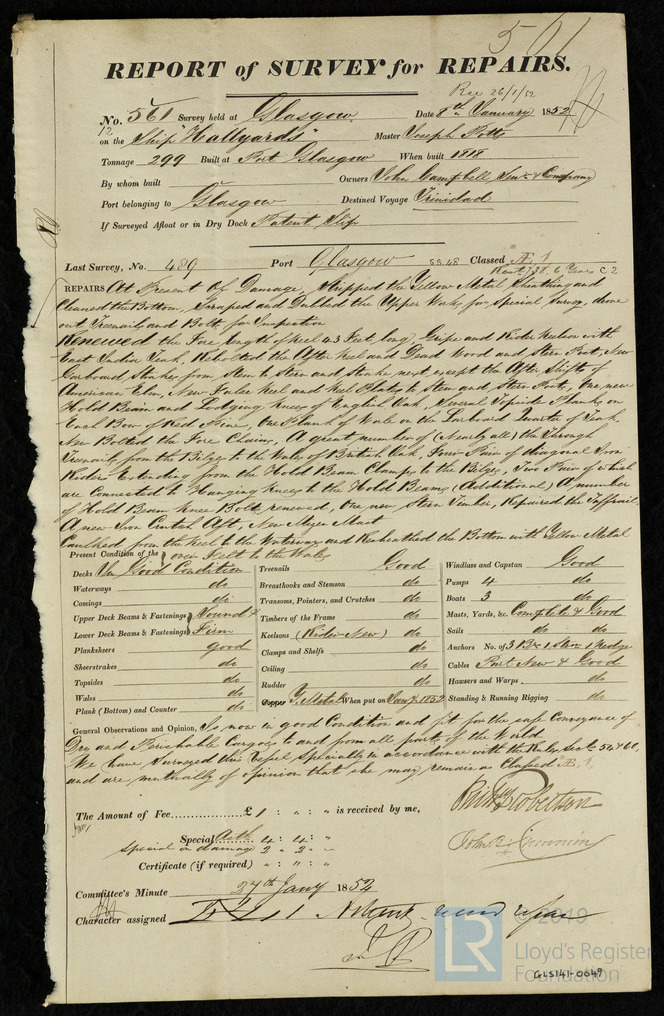 501
REPORT of SURVEY for REPAIRS.
Rec 26/1/52
No. 561 Survey held at Glasgow Date 8th January 1852
12
on the Ship "Hallyards" Master Joseph Potts
Tonnage 299 Built at Port Glasgow When built 1818
By whom built Owners John Campbell, Senr. & Company
Port belonging to Glasgow Destined Voyage Trinidad
If Surveyed Afloat or in Dry Dock Patent Slip
Last Survey, No. 489 Port Glasgow Classed Æ 1
REPAIRS At Present Of Damage, Stripped the Yellow Metal Sheathing and
Cleaned the Bottom, Scraped and Dubbed the Upper Works for Special Survey, drove
out Treenails and Bolts for Inspection
Renewed the Fore length of Keel 43 Feet long, Gripe and Rider Keelson with
East India Teak, Rebolted the After Keel and Dead Wood and Stern Post, New
Garboard Strakes from Stem to Stern and Strake next except the After Shifts of
American Elm, New False Keel and Keel Plates to Stem and Stern Posts, One new
Hold Beam and Lodging Knees of English Oak, Several Topside Planks on
Each Bow of Red Pine, One Plank of Wale on the Larboard Quarter of Teak,
New Bolted the Fore Chains, A great number of (Nearly all) the Through
Treenails from the Bilges to the Wales of British Oak, Four Pair of diagonal Iron
Riders Extending from the Hold Beam Clamps to the Bilges, Two Pair of which
are Connected to Hanging Knees to the Hold Beams (Additional) A number
of Hold Beam Knee Bolts renewed, One new Stern Timber, Repaired the Taffrail,
A new Iron Crutch Aft, New Mizen Mast
Caulked from the Keel to the Waterways and Resheathed the Bottom with Yellow Metal
over Felt to the Wales
Present Condition of the
Decks In Good Condition
Waterways do
Comings do
Upper Deck Beams & Fastenings Sound &
Lower Deck Beams & Fastenings Firm
Planksheers good
Sheerstrakes do
Topsides do
Wales do
Plank (Bottom) and Counter do
Treenails Good
Breasthooks and Stemson do
Transoms, Pointers, and Crutches do
Timbers of the Frame do
Keelsons (Rider New) do
Clamps and Shelfs do
Ceiling do
Rudder do
Copper Y. Metal When put on Jany. 1852
Windlass and Capstan Good
Pumps 4 do
Boats 3 do
Masts, Yards, &c. Complete & Good
Sails do do
Anchors No. of 3 Br 1 Strm 1 Kedge
Cables Part New & Good
Hawsers and Warps do
Standing & Running Rigging do
General Observations and Opinion, Is now in good Condition and fit for the safe Conveyance of
Dry and Perishable Cargoes to and from all parts of the World
We have Surveyed this Vessel Specially in accordance with the Rules Sects. 54 & 60,
and are mutually of opinion that she may remain as Classed Æ 1
Robertson
The Amount of Fee £ 1 : „ : „ is received by me,
Special 4 : 4 : „
Special on damage 2 „ 2 „ „
Certificate (if required) „ : „ : „
Committee's Minute 27th Jany 1852
Character assigned Æ 1
© 2019
LR
Lloyd's Register
Foundation
GLS141-0049